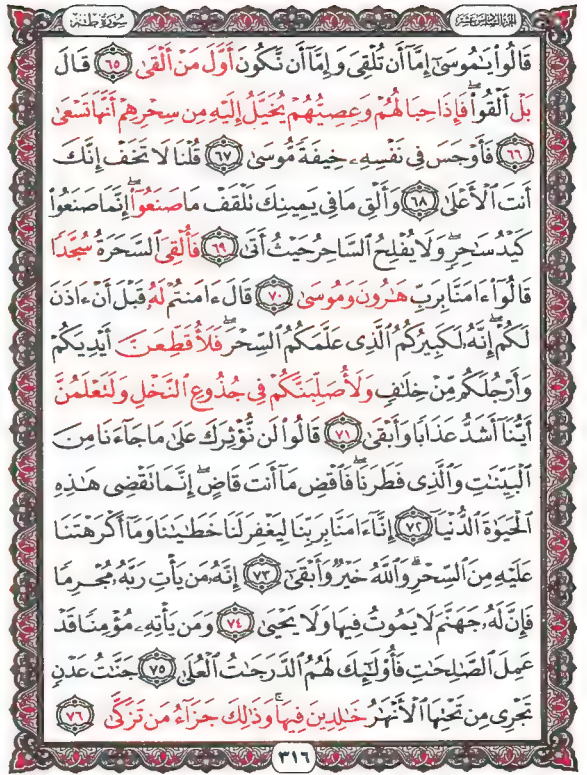 سُورَةُ طٰهٰ الجزء السادس عشر
قَالُوا۟ يَٰمُوسَىٰٓ إِمَّآ أَن تُلْقِىَ وَإِمَّآ أَن نَّكُونَ أَوَّلَ مَنْ أَلْقَىٰ ٦٥ قَالَ
بَلْ أَلْقُوا۟ ۖ فَإِذَا حِبَالُهُمْ وَعِصِيُّهُمْ يُخَيَّلُ إِلَيْهِ مِن سِحْرِهِمْ أَنَّهَا تَسْعَىٰ
٦٦ فَأَوْجَسَ فِى نَفْسِهِۦ خِيفَةً مُّوسَىٰ ٦٧ قُلْنَا لَا تَخَفْ إِنَّكَ
أَنتَ ٱلْأَعْلَىٰ ٦٨ وَأَلْقِ مَا فِى يَمِينِكَ تَلْقَفْ مَا صَنَعُوٓا۟ ۖ إِنَّمَا صَنَعُوا۟
كَيْدُ سَٰحِرٍ ۖ وَلَا يُفْلِحُ ٱلسَّاحِرُ حَيْثُ أَتَىٰ ٦٩ فَأُلْقِىَ ٱلسَّحَرَةُ سُجَّدًا
قَالُوٓا۟ ءَامَنَّا بِرَبِّ هَٰرُونَ وَمُوسَىٰ ٧٠ قَالَ ءَامَنتُمْ لَهُۥ قَبْلَ أَنْ ءَاذَنَ
لَكُمْ ۖ إِنَّهُۥ لَكَبِيرُكُمُ ٱلَّذِى عَلَّمَكُمُ ٱلسِّحْرَ ۖ فَلَأُقَطِّعَنَّ أَيْدِيَكُمْ
وَأَرْجُلَكُم مِّنْ خِلَٰفٍ وَلَأُصَلِّبَنَّكُمْ فِى جُذُوعِ ٱلنَّخْلِ وَلَتَعْلَمُنَّ
أَيُّنَآ أَشَدُّ عَذَابًا وَأَبْقَىٰ ٧١ قَالُوا۟ لَن نُّؤْثِرَكَ عَلَىٰ مَا جَآءَنَا مِنَ
ٱلْبَيِّنَٰتِ وَٱلَّذِى فَطَرَنَا ۖ فَٱقْضِ مَآ أَنتَ قَاضٍ ۖ إِنَّمَا تَقْضِى هَٰذِهِ
ٱلْحَيَوٰةَ ٱلدُّنْيَآ ٧٢ إِنَّآ ءَامَنَّا بِرَبِّنَا لِيَغْفِرَ لَنَا خَطَٰيَٰنَا وَمَآ أَكْرَهْتَنَا
عَلَيْهِ مِنَ ٱلسِّحْرِ ۗ وَٱللَّهُ خَيْرٌ وَأَبْقَىٰٓ ٧٣ إِنَّهُۥ مَن يَأْتِ رَبَّهُۥ مُجْرِمًا
فَإِنَّ لَهُۥ جَهَنَّمَ لَا يَمُوتُ فِيهَا وَلَا يَحْيَىٰ ٧٤ وَمَن يَأْتِهِۦ مُؤْمِنًا قَدْ
عَمِلَ ٱلصَّٰلِحَٰتِ فَأُو۟لَٰٓئِكَ لَهُمُ ٱلدَّرَجَٰتُ ٱلْعُلَىٰ ٧٥ جَنَّٰتُ عَدْنٍ
تَجْرِى مِن تَحْتِهَا ٱلْأَنْهَٰرُ خَٰلِدِينَ فِيهَا ۚ وَذَٰلِكَ جَزَآءُ مَن تَزَكَّىٰ ٧٦
٣١٦